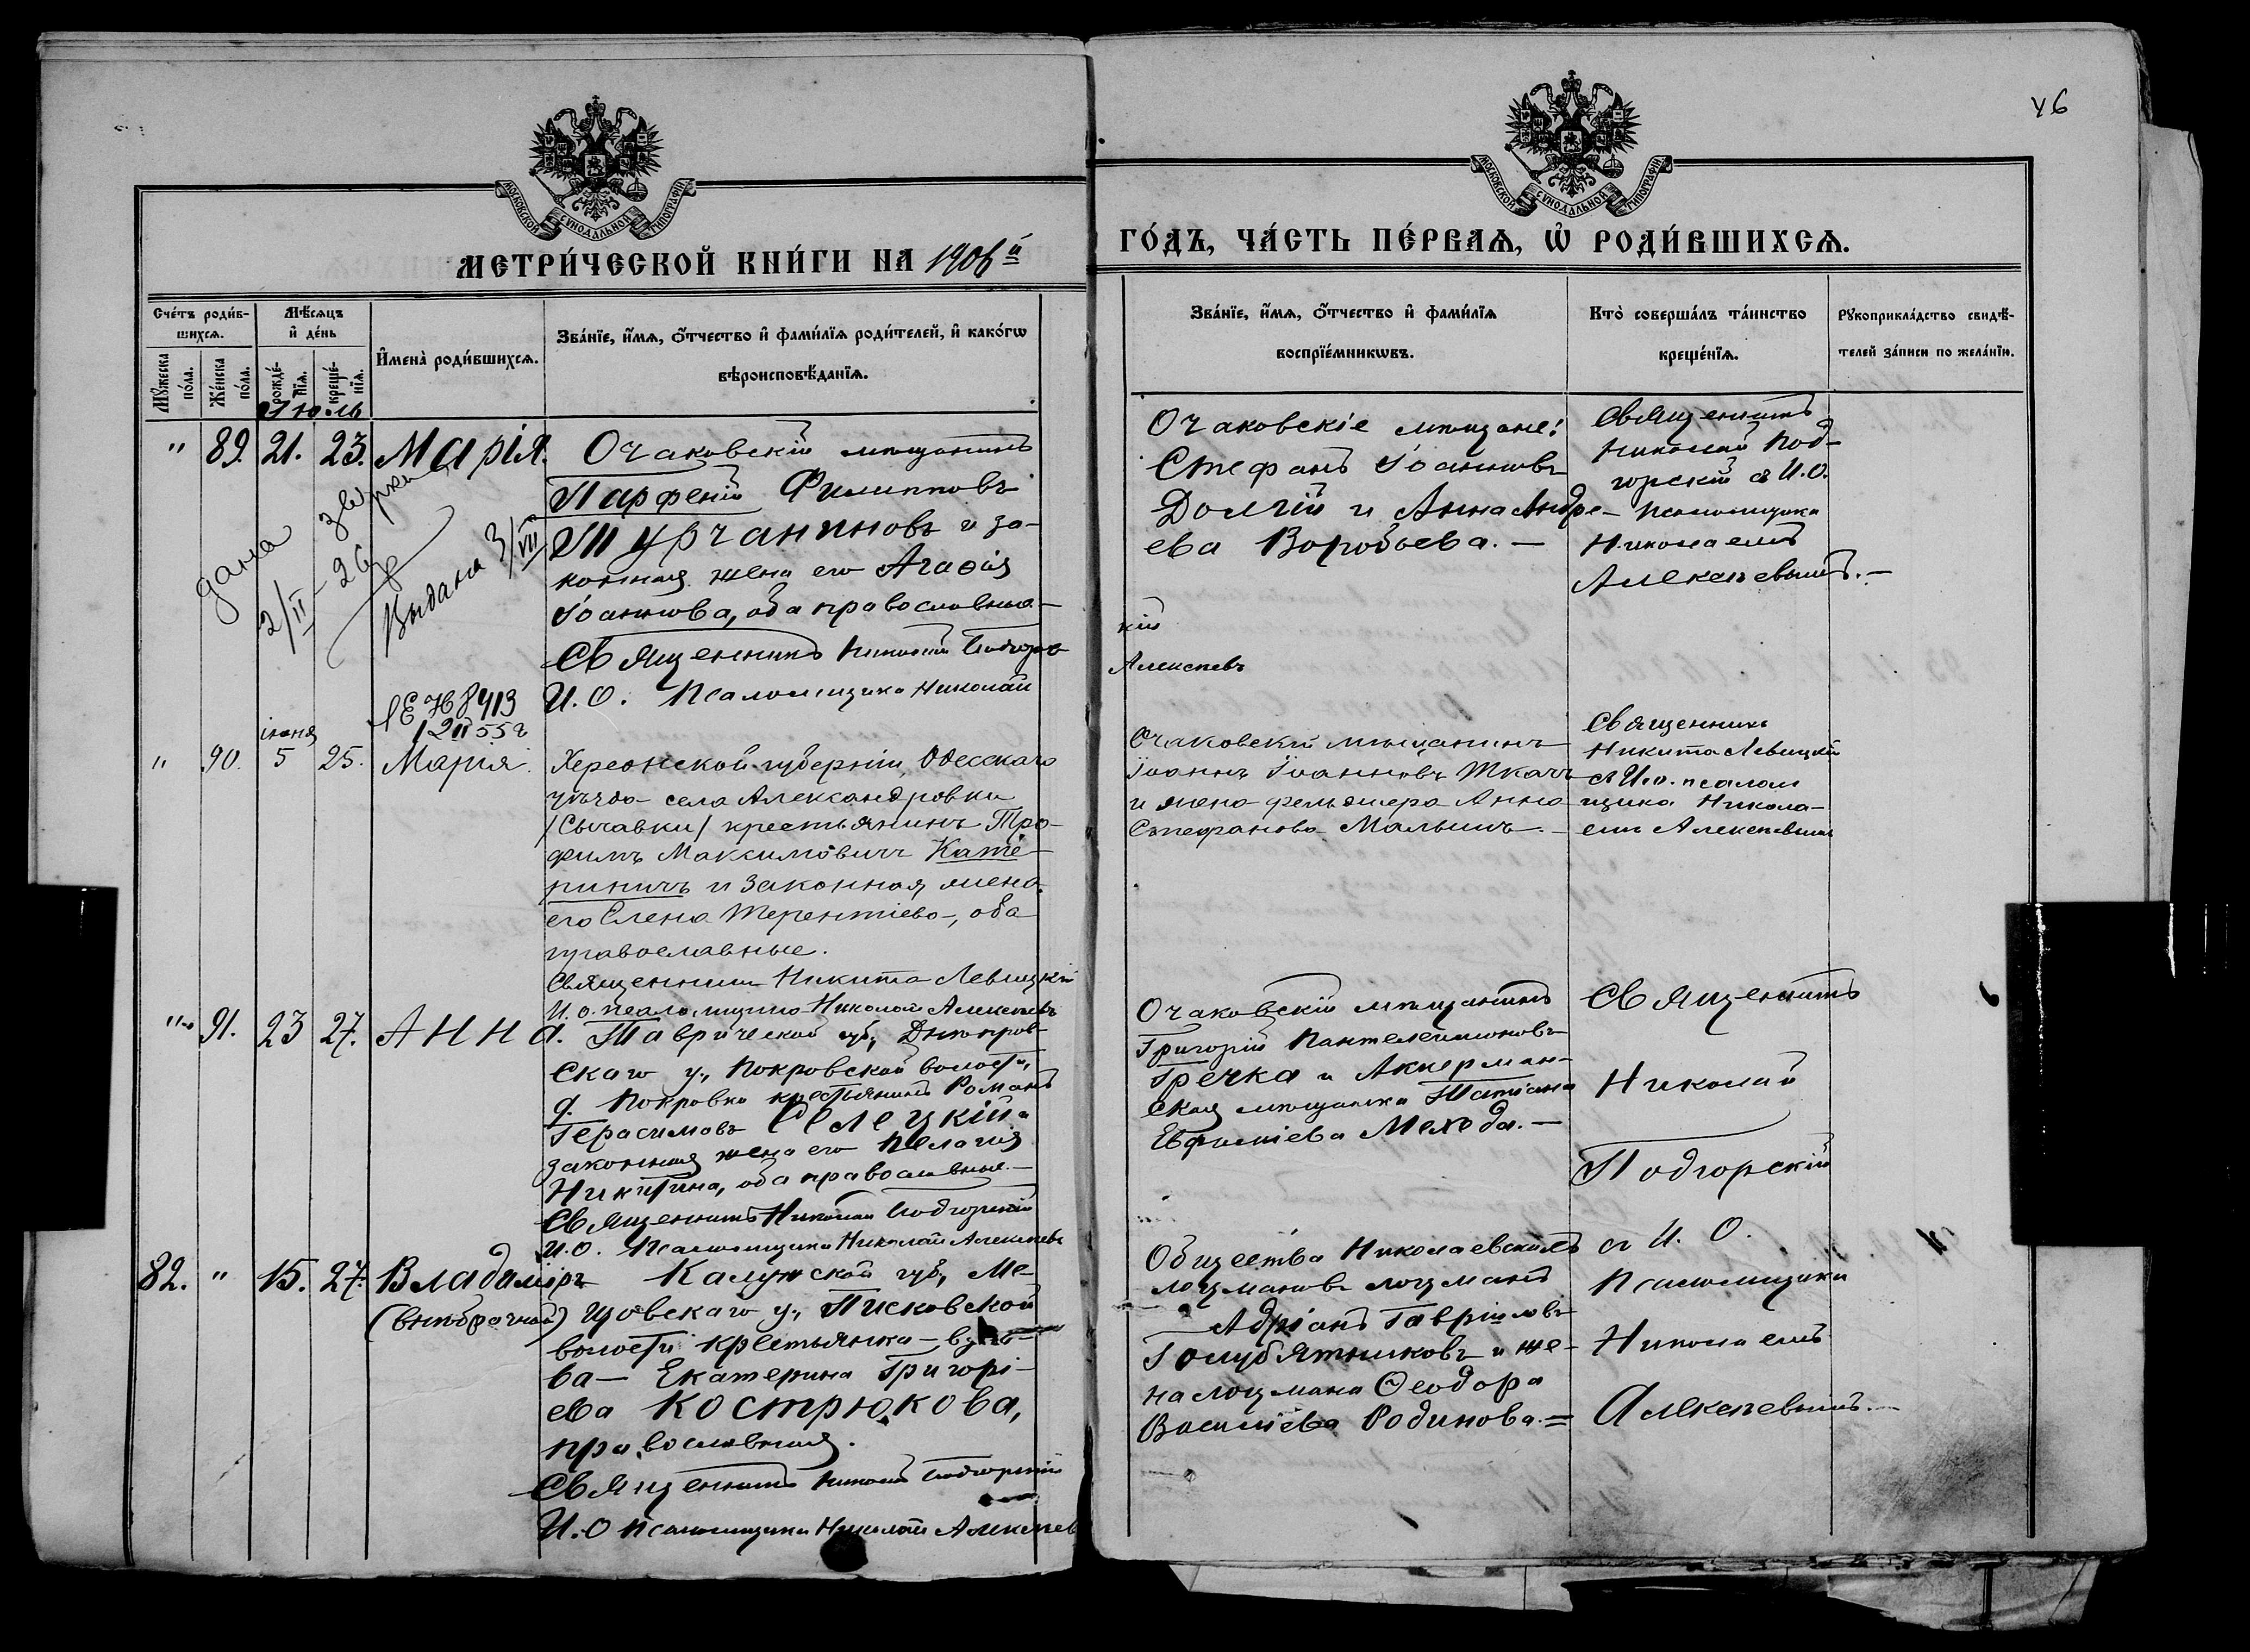 46
МОСКОВСКОЙ СѴНОДАЛЬНОЙ ТИПОГРАФІИ
МОСКОВСКОЙ СѴНОДАЛЬНОЙ ТИПОГРАФІИ
МЕТРИ́ЧЕСКОЙ КНИ́ГИ НА 1906й
ГО́ДЪ, ЧА́СТЬ ПЕ́РВАѦ, Ѡ҆ РОДИ́ВШИХСѦ.
Сче́тъ роди́в-
шихсѧ.
Мѣ́сѧцъ
и҆ де́нь
И҆мена̀ роди́вшихсѧ.
Зва́нїе, и҆́мѧ, ѻ҆́тчество и҆ фами́лїѧ роди́телей, и҆ како́гѡ
вѣроисповѣ́данїѧ.
Мꙋ́жеска
по́ла.
Же́нска
по́ла.
рожде́-
нїѧ.
креще́-
нїѧ.
Зва́нїе, и҆́мѧ, ѻ҆́тчество и҆ фами́лїѧ
воспрїе́мникѡвъ.
Кто̀ соверша́лъ та́инство
креще́нїѧ.
Рꙋкоприкла́дство свидѣ́-
телей за́писи по жела́нїю.
Іюль
" 89. 21. 23. Марія.
Очаковскій мѣщанинъ
Парфеній Филипповъ
Турчаниновъ и за-
конная жена его Агафія
Іоаннова, оба православные.
Священникъ Николай Подгорскій
И. О. Псаломщика Николай Алексѣевъ
дана
2/II-26
Выдана 3/VII
8413
Очаковскіе мѣщане:
Стефанъ Іоанновъ
Долгій и Анна Андре-
ева Воробьева. —
Священникъ
Николай Под-
горскій съ И.О.
псаломщика
Николаемъ
Алексѣевымъ. —
іюня
" 90. 5 25. Марія.
Херсонской губерніи, Одесскаго
уѣзда села Александровки
/Сычавки/ крестьянинъ Тро-
фимъ Максимовичъ Кате-
риничъ и законная жена
его Елена Терентіева, оба
православные.
Священникъ Никита Левицкій
И. о. псаломщика Николай Алексѣевъ
Очаковскій мѣщанинъ
Іоаннъ Іоанновъ Ткачъ
и жена фельдшера Анна
Стефанова Малышъ. —
Священникъ
Никита Левицкій
съ И. о. псалом
щика Никола-
емъ Алексѣевымъ
" 91. 23 27. Анна.
Таврической губ., Днѣпров-
скаго у., Покровской волости,
д. Покровки крестьянинъ Романъ
Герасимовъ Селецкій и
законная жена его Пелагія
Никитина, оба православные. —
Священникъ Николай Подгорскій
И. О. Псаломщика Николай Алексѣевъ
Очаковскій мѣщанинъ
Григорій Пантелеимоновъ
Гречка и Аккерман-
ская мѣщанка Татіана
Евфиміева Мехода. —
Священникъ
Николай
Подгорскій
съ И. О.
Псаломщика
Николаемъ
Алексѣевымъ.
82. " 15. 27. Владиміръ
(внѣбрачный)
Калужской губ., Ме-
щовскаго у., Писковской
волости крестьянка — вдо-
ва — Екатерина Григорі-
ева Кострюкова,
православная.
Священникъ Николай Подгорскій
И. О Псаломщика Николай Алексѣев
Общества Николаевскихъ
лоцмановъ лоцманъ
Адріанъ Гавріиловъ
Голубятниковъ и же-
на лоцмана Ѳеодора
Василіева Родинова. =